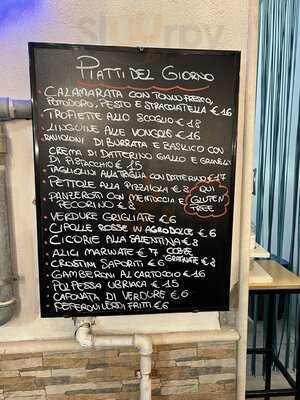 PIATTI DEL GIORNO
CALAMARATA CON TONNO FRESCO,
POMODORO, PESTO E STRACCIATELLA € 16
TROFIETTE ALLO SCOGLIO € 18
LINGUINE ALLE VONGOLE € 16
RAVIOLONI DI BURRATA E BASILICO CON
CREMA DI DATTERINO GIALLO E GRANELLA
DI PISTACCHIO € 15
TAGLIOLINI ALLA TAGLIA CON DATTERINO € 17
PETTOLE ALLA PIZZAIOLA € 8
PANZEROTTI CON MENTUCCIA E
PECORINO € 8
QUI GLUTEN FREE
VERDURE GRIGLIATE € 6
CIPOLLE ROSSE IN AGRODOLCE € 6
CICORIE ALLA SALENTINA € 8
ALICI MARINATE € 7 COZZE
GRATINATE € 8
CROSTINI SAPORITI € 6
GAMBERONI AL CARTOCCIO € 16
POLPESSA UBRIACA € 15
CAPONATA DI VERDURE € 6
PEPERONI VERDI FRITTI € 6